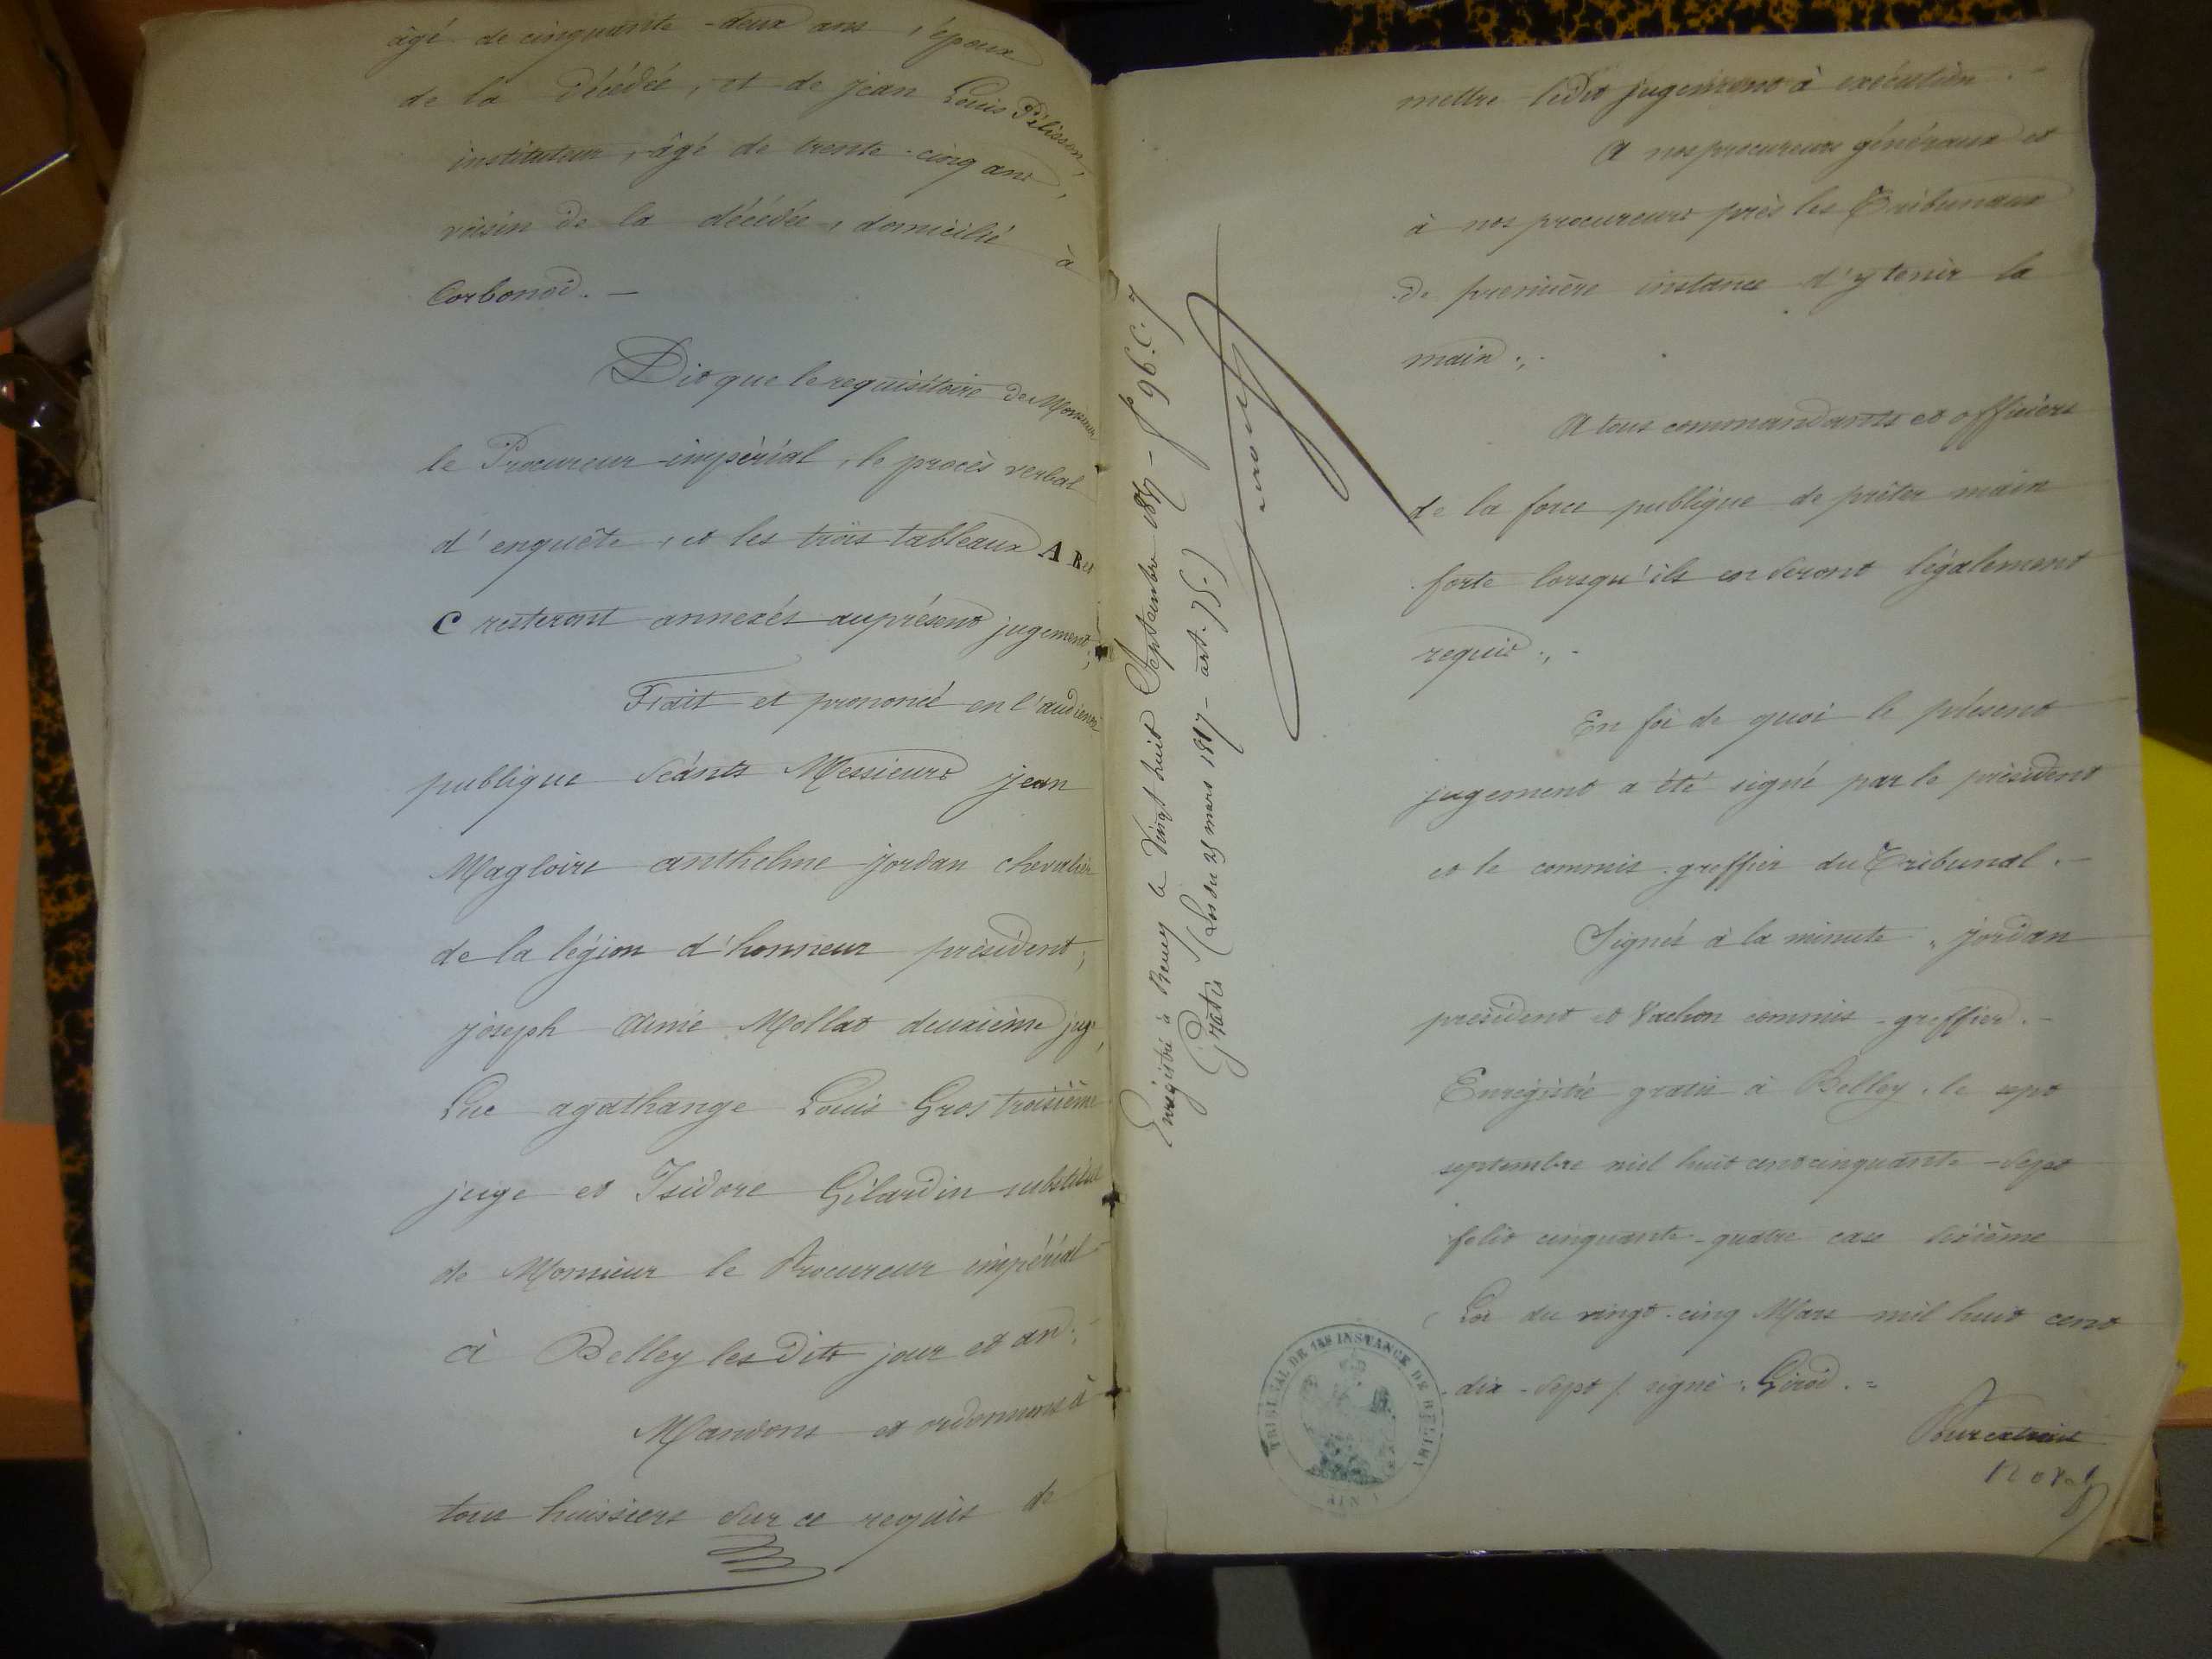 âgé de cinquante-deux ans, époux
de la décédée, et de jean Louis Pélisson,
instituteur, âgé de trente-cinq ans,
voisin de la décédée, domicilié à
Corbonod. —
Dit que le requisitoire de Monsieur
le Procureur impérial, le procès verbal
d'enquête, et les trois tableaux A B et
C resteront annexés au présent jugement;
Fait et prononcé en l'audience
publique séants Messieurs jean
Magloire anthelme jordan chevalier
de la légion d'honneur président,
joseph aimé Mollat deuxième juge,
Luc agathange Louis Gros troisième
juge et Isidore Gilardin substitut
de Monsieur le Procureur impérial
à Belley les dits jour et an;
Mandons et ordonnons à
tous huissiers sur ce requis de
Enregistré à le Vingt huit Septembre 1857 - f° 96. C. 7
Gratis (Loi du 25 mars 1817 - art. 75.)
mettre ledit jugement à exécution. —
A nos procureurs généraux et
à nos procureurs près les Tribunaux
de première instance d'y tenir la
main;
A tous commandants et officiers
de la force publique de prêter main
forte lorsqu'ils en seront légalement
requis;
En foi de quoi le présent
jugement a été signé par le président
et le commis-greffier du Tribunal. —
Signés à la minute, jordan
président et Vachon commis-greffier. —
Enregistré gratis à Belley, le sept
septembre mil huit cent cinquante-sept
folio cinquante-quatre case sixième
( Loi du vingt-cinq Mars mil huit cent
dix-sept / signé: Girod. =
Pour extrait
TRIBUNAL DE 1RE INSTANCE DE BELLEY
(AIN)